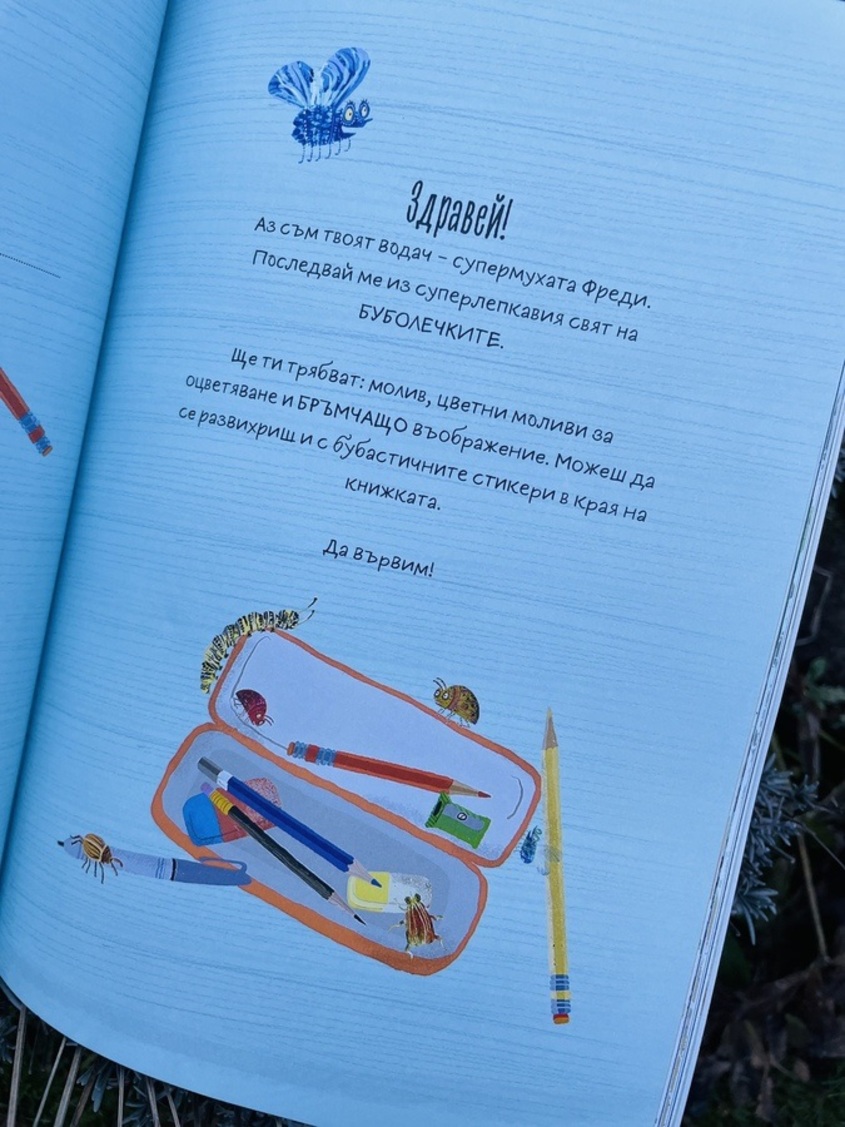 Здравей!
Аз съм твоят водач – супермухата Фреди.
Последвай ме из суперлепкавия свят на
БУБОЛЕЧКИТЕ.
Ще ти трябват: молив, цветни моливи за
оцветяване и БРЪМЧАЩО въображение. Можеш да
се развихриш и с бубастичните стикери в края на
книжката.
Да вървим!